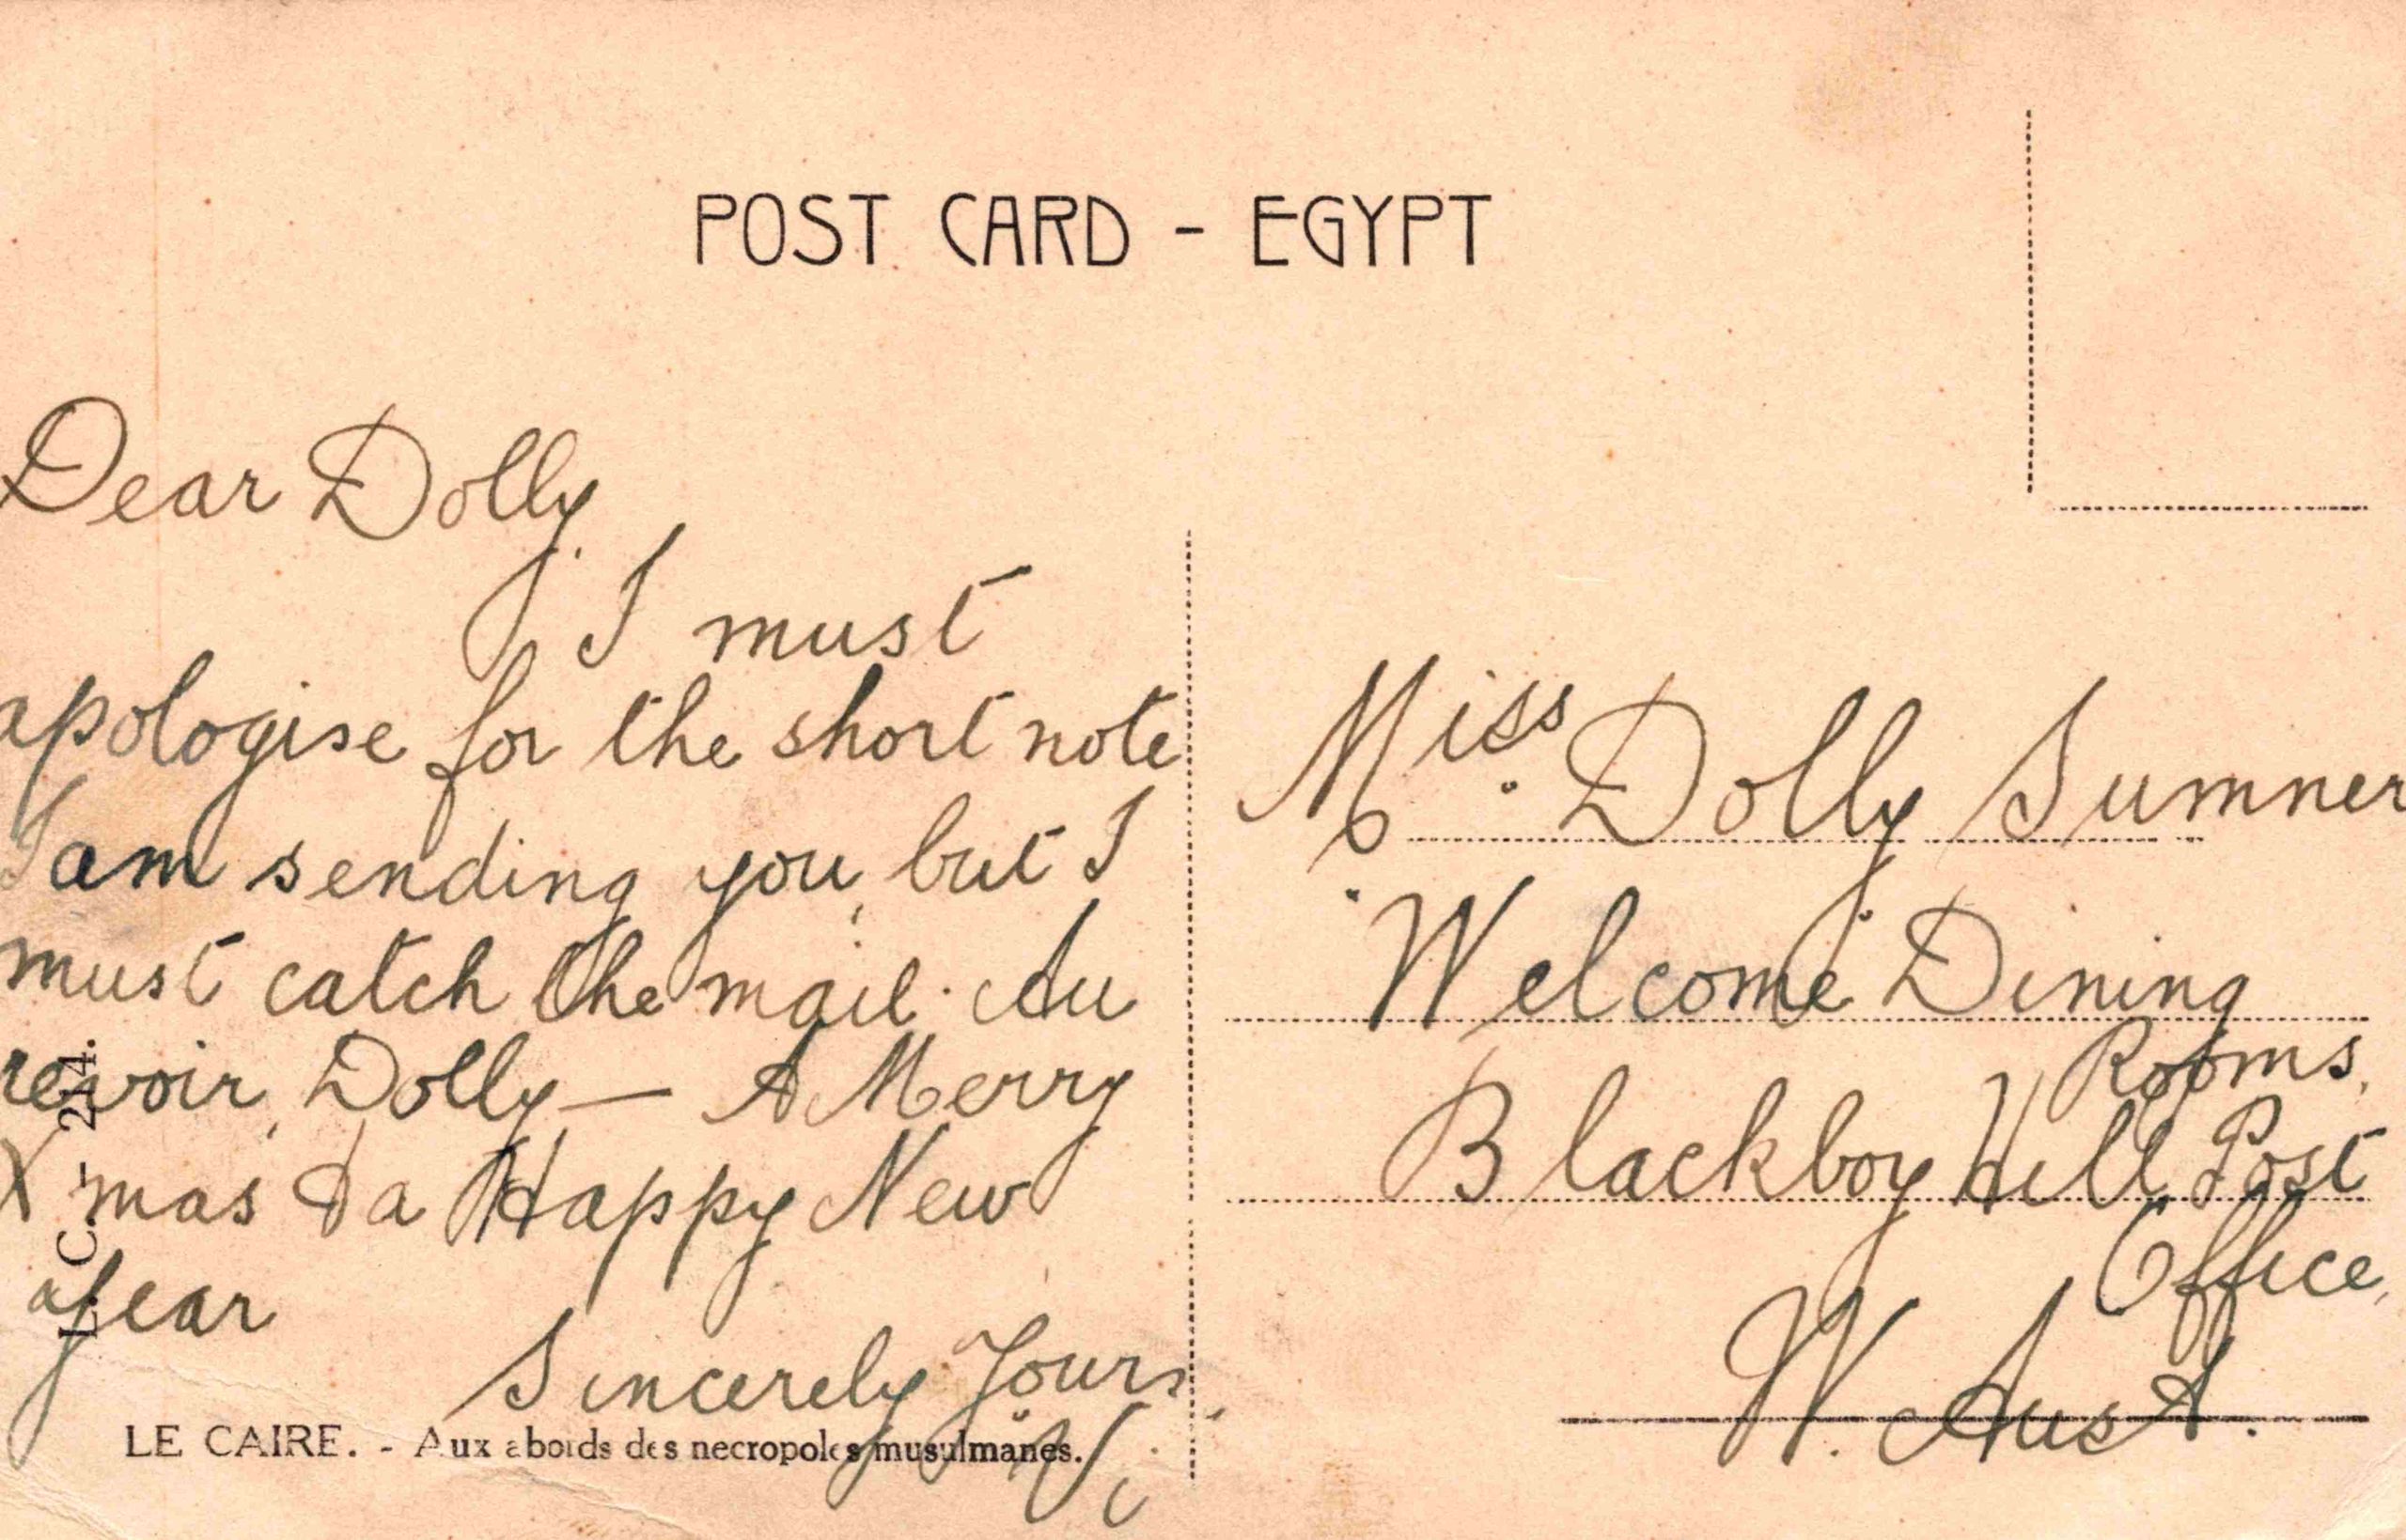 POST CARD - EGYPT
Dear Dolly
I must
apologise for the short note
I am sending you, but I
must catch the mail. Au
revoir, Dolly — A Merry
X mas & a Happy New
Year
Sincerely Yours
Vi
L. C. - 214.
LE CAIRE. - Aux abords des necropoles musulmanes.
Miss Dolly Sumner
Welcome Dining
Rooms,
Blackboy Hill Post
Office,
W. Aust.